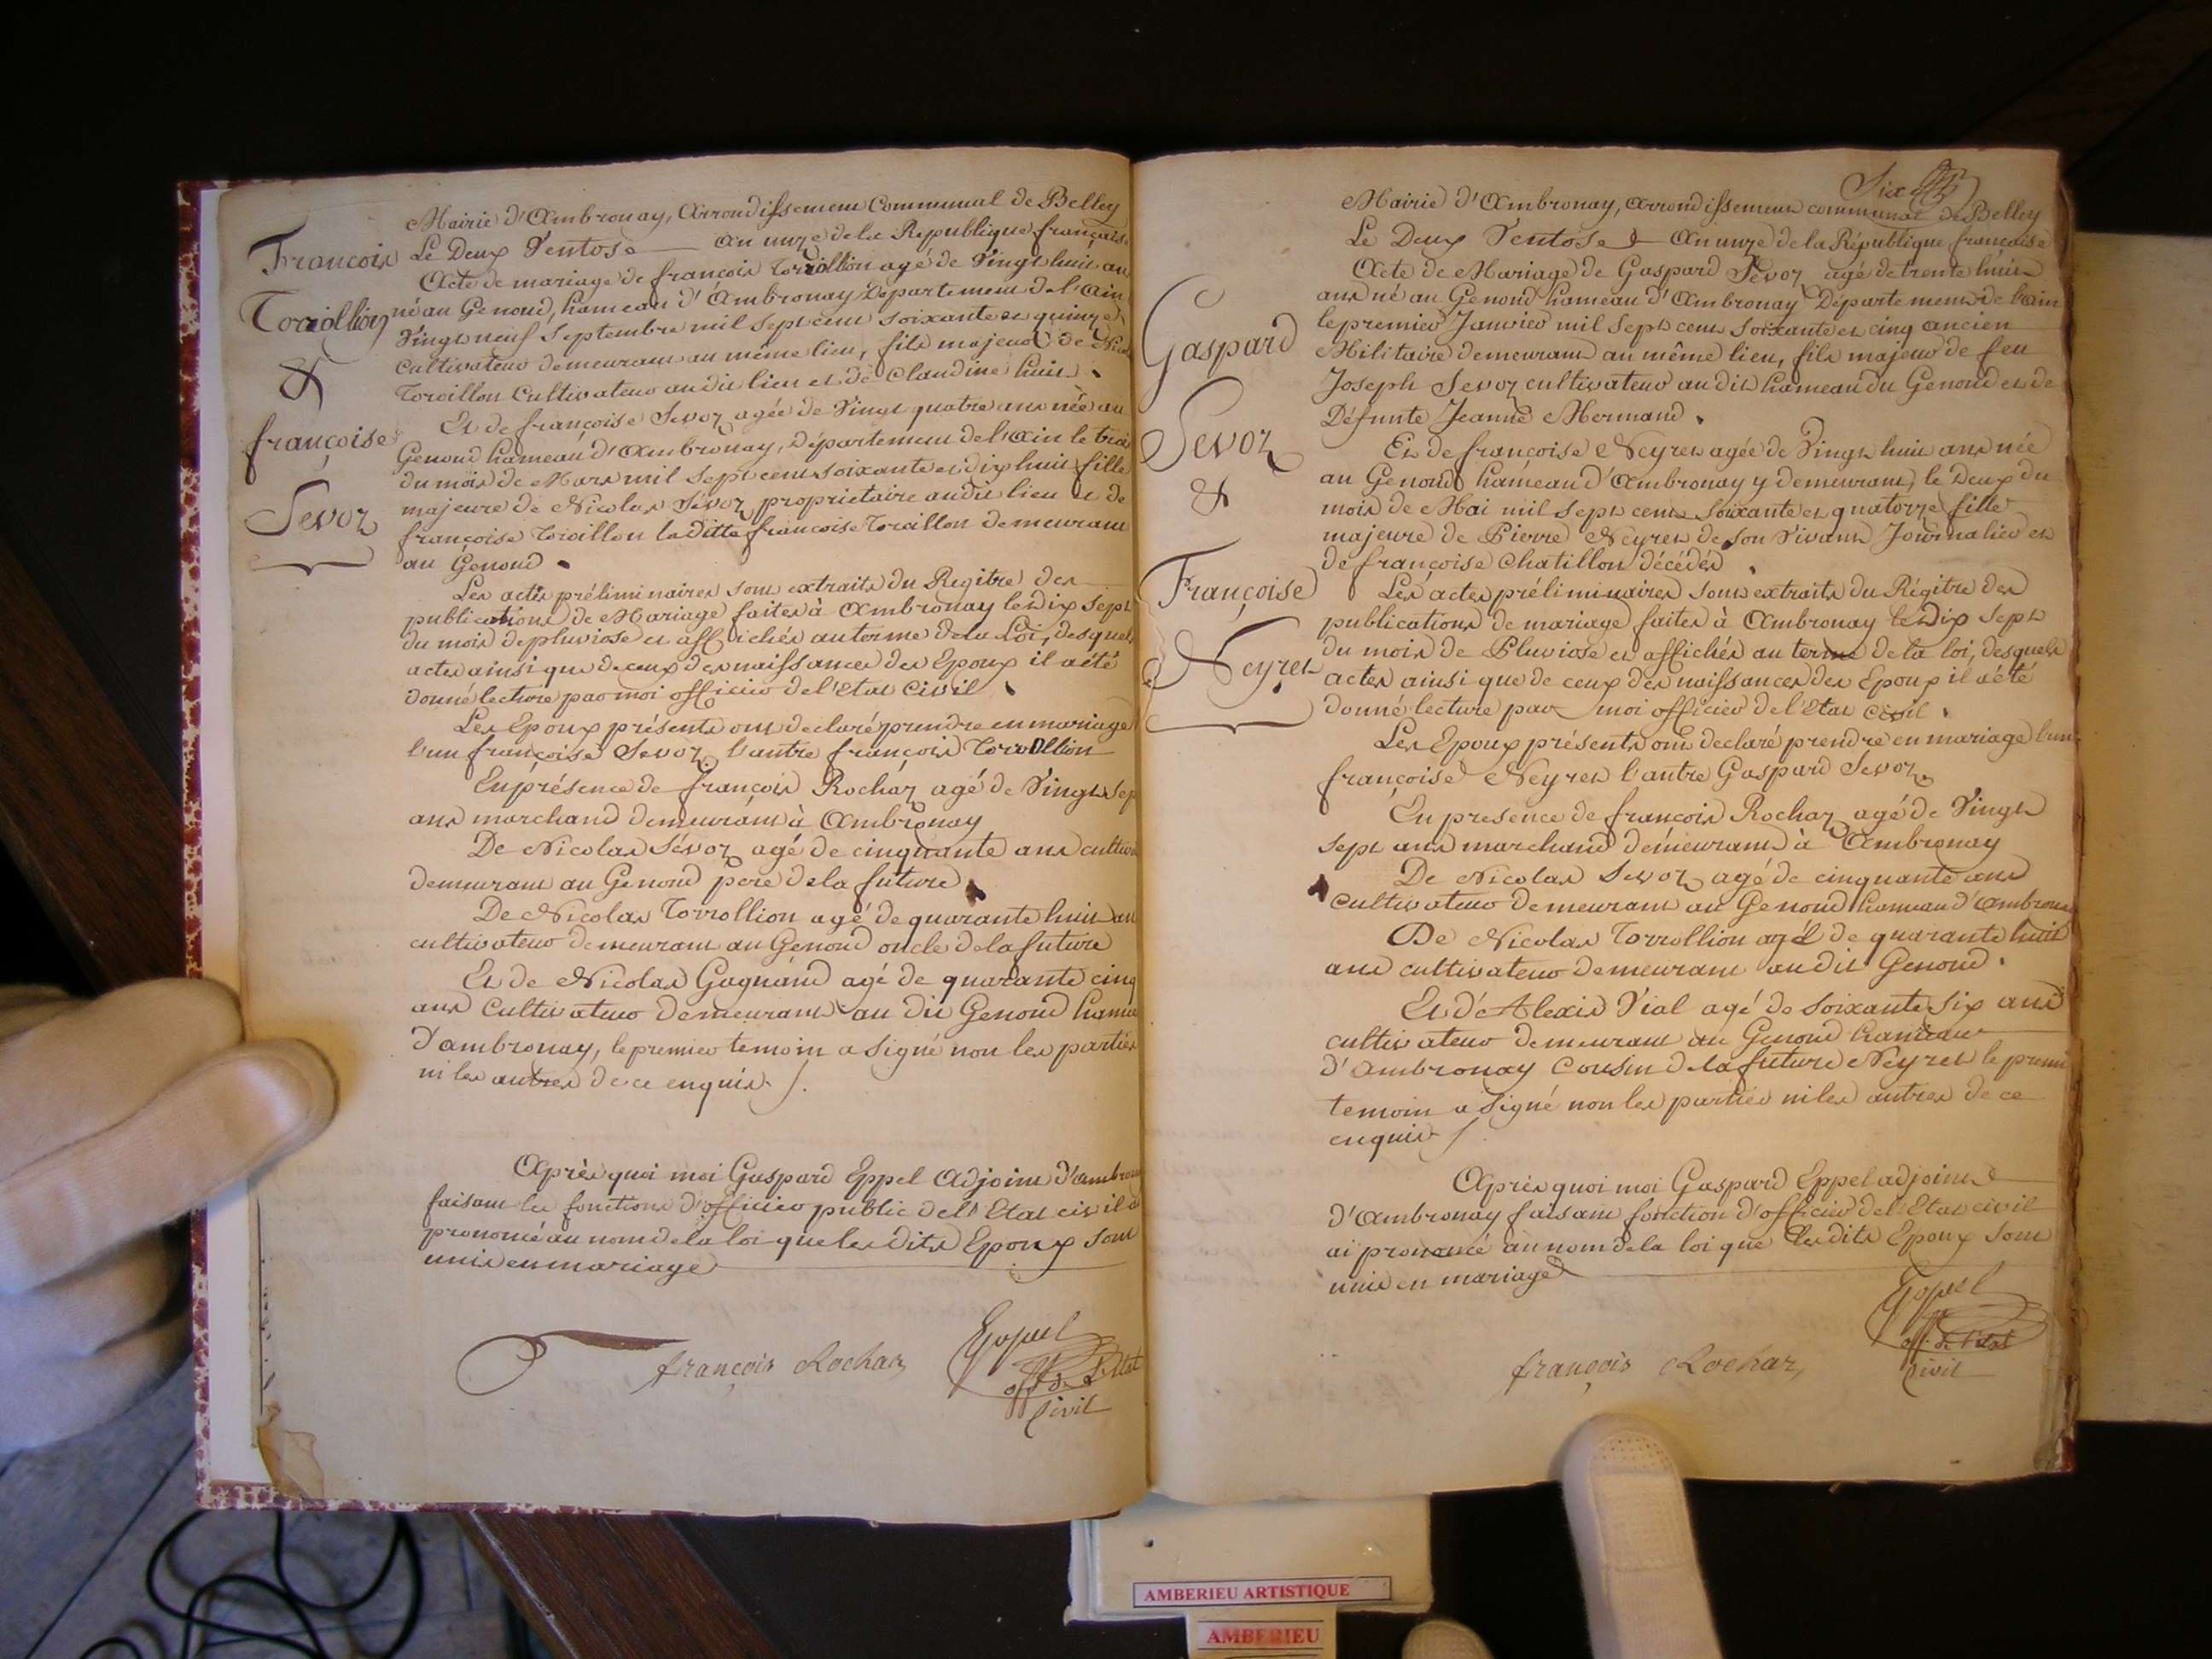 Mairie d'Ambronay, Arrondissement Communal de Belley
Le Deux Ventose an onze de la Republique française
Acte de mariage de françois Torrollion agé de Vingt huit an
né au Genoud, hameau d'Ambronay Département de l'ain
Vingt neuf Septembre mil sept cent soixante et quinze
Cultivateur demeurant au même lieu, fils majeur de
Toroillon Cultivateur audit lieu et de Claudine huit
Et de françoise Sevoz agée de Vingt quatre ans née au
Genoud hameau d'Ambronay, Département de l'ain le trois
du mois de Mars mil sept cent soixante et dix huit fille
majeure de Nicolas Sévoz, propriétaire audit lieu et de
françoise Toroillon laditte françoise Toroillon demeurant
au Genoud
Les actes préliminaires sont extraits du Regitre des
publications de Mariage faites à Ambronay le dix sept
du mois de pluviose et affichés au terme de la Loi, desquels
actes ainsi que de ceux des naissances des Epoux il a été
donné lecture par moi officier de l'Etat Civil
Les Epoux présents ont declaré prendre en mariage
l'un françoise Sevoz l'autre françois Torrollion
En présence de françois Rochaz agé de Vingt sep
ans marchand demeurant à Ambronay
De Nicolas Sévoz agé de cinquante ans cultiv
demeurant au Genoud pere de la future
De Nicolas Torrollion agé de quarante huit an
cultivateur demeurant au Genoud oncle de la future
Et de Nicolas Gagnand agé de quarante cinq
ans Cultivateur Demeurant au dit Genoud hame
d'ambronay, le premier temoin a signé non les parties
ni les autres de ce enquis
Après quoi moi Gaspard Eppel Adjoint d'ambron
faisant les fonctions d'officier public de l'Etat civil
prononcé au nom de la loi que les dits Epoux sont
unis en mariage
françois Rochaz
Eppel
off. de l'état
Civil
François
Torrollion
&
françoise
Sevoz
Six
Mairie d'Ambronay, arrondissement communal de Belley
Le Deux Ventose An onze de la République françoise
Acte de Mariage de Gaspard Sevoz agé de trente huit
ans né au Genoud hameau d'Ambronay Département de l'ain
le premier Janvier mil Sept cent Soixante et cinq ancien
Militaire demeurant au même lieu, fils majeur de feu
Joseph Sevoz cultivateur audit hameau du Genoud et de
Défunte Jeanne Mermand
Et de françoise Neyret agée de Vingt huit ans née
au Genoud hameau d'Ambronay y demeurant, le Deux du
mois de Mai mil sept cent soixante et quatorze fille
majeure de Pierre Neyret de son Vivant Journalier et
de françoise Chatillon décédés
Les actes préliminaires sont extraits du Régitre des
publications de mariage faites à Ambronay le dix sept
du mois de Pluviose et affichés au terme de la loi, desquels
actes ainsi que de ceux des naissances des Epoux il a été
donné lecture par moi officier de l'Etat Civil
Les Epoux présents ont declaré prendre en mariage l'un
françoise Neyret l'autre Gaspard Sevoz
En presence de françois Rochaz agé de Vingt
sept ans marchand demeurant à Ambronay
De Nicolas Sevoz agé de cinquante ans
Cultivateur demeurant au Genoud hameau d'ambrona
De Nicolas Torrollion agé de quarante huit
ans cultivateur demeurant audit Genoud
Et d'Alexis Vial agé de soixante six ans
cultivateur demeurant au Genoud hameau
d'Ambronay Cousin de la future Neyret le premi
temoin a signé non les parties ni les autres de ce
enquis
Après quoi moi Gaspard Eppel adjoint
d'Ambronay faisant fonction d'officier de l'Etat civil
ai prononcé au nom de la loi que les dits Epoux sont
unis en mariage
françois Rochaz
Eppel
off. de l'état
Civil
Gaspard
Sevoz
&
Françoise
Neyret
AMBERIEU ARTISTIQUE
AMBERIEU